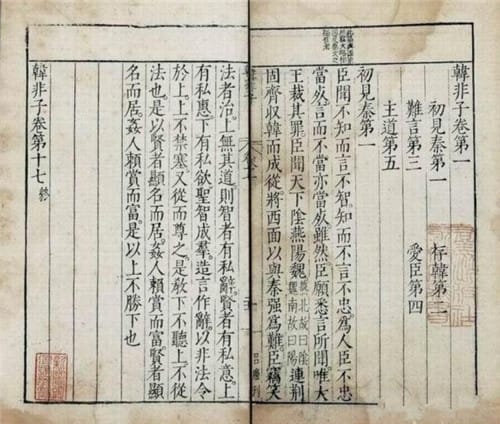 韓非子卷第一
初見秦第一 存韓第二
難言第三 愛臣第四
主道第五
初見秦第一
臣聞不知而言不智知而不言不忠爲人臣不忠
當死言而不當亦當死雖然臣願悉言所聞唯大
王裁其罪臣聞天下陰燕陽魏北故曰陰魏南故曰陽連荆
固齊收韓而成從將西面以與秦强爲難臣竊笑
法者治上無其道則智者有私辭賢者有私意上
有私惠下有私欲聖智成羣造言作辭以非法令
於上上不禁塞又從而尊之是敎下不聽上不從
法也是以賢者顯名而居姦人賴賞而富賢者顯
名而居姦人賴賞而富是以上不勝下也
韓非子卷第十七終